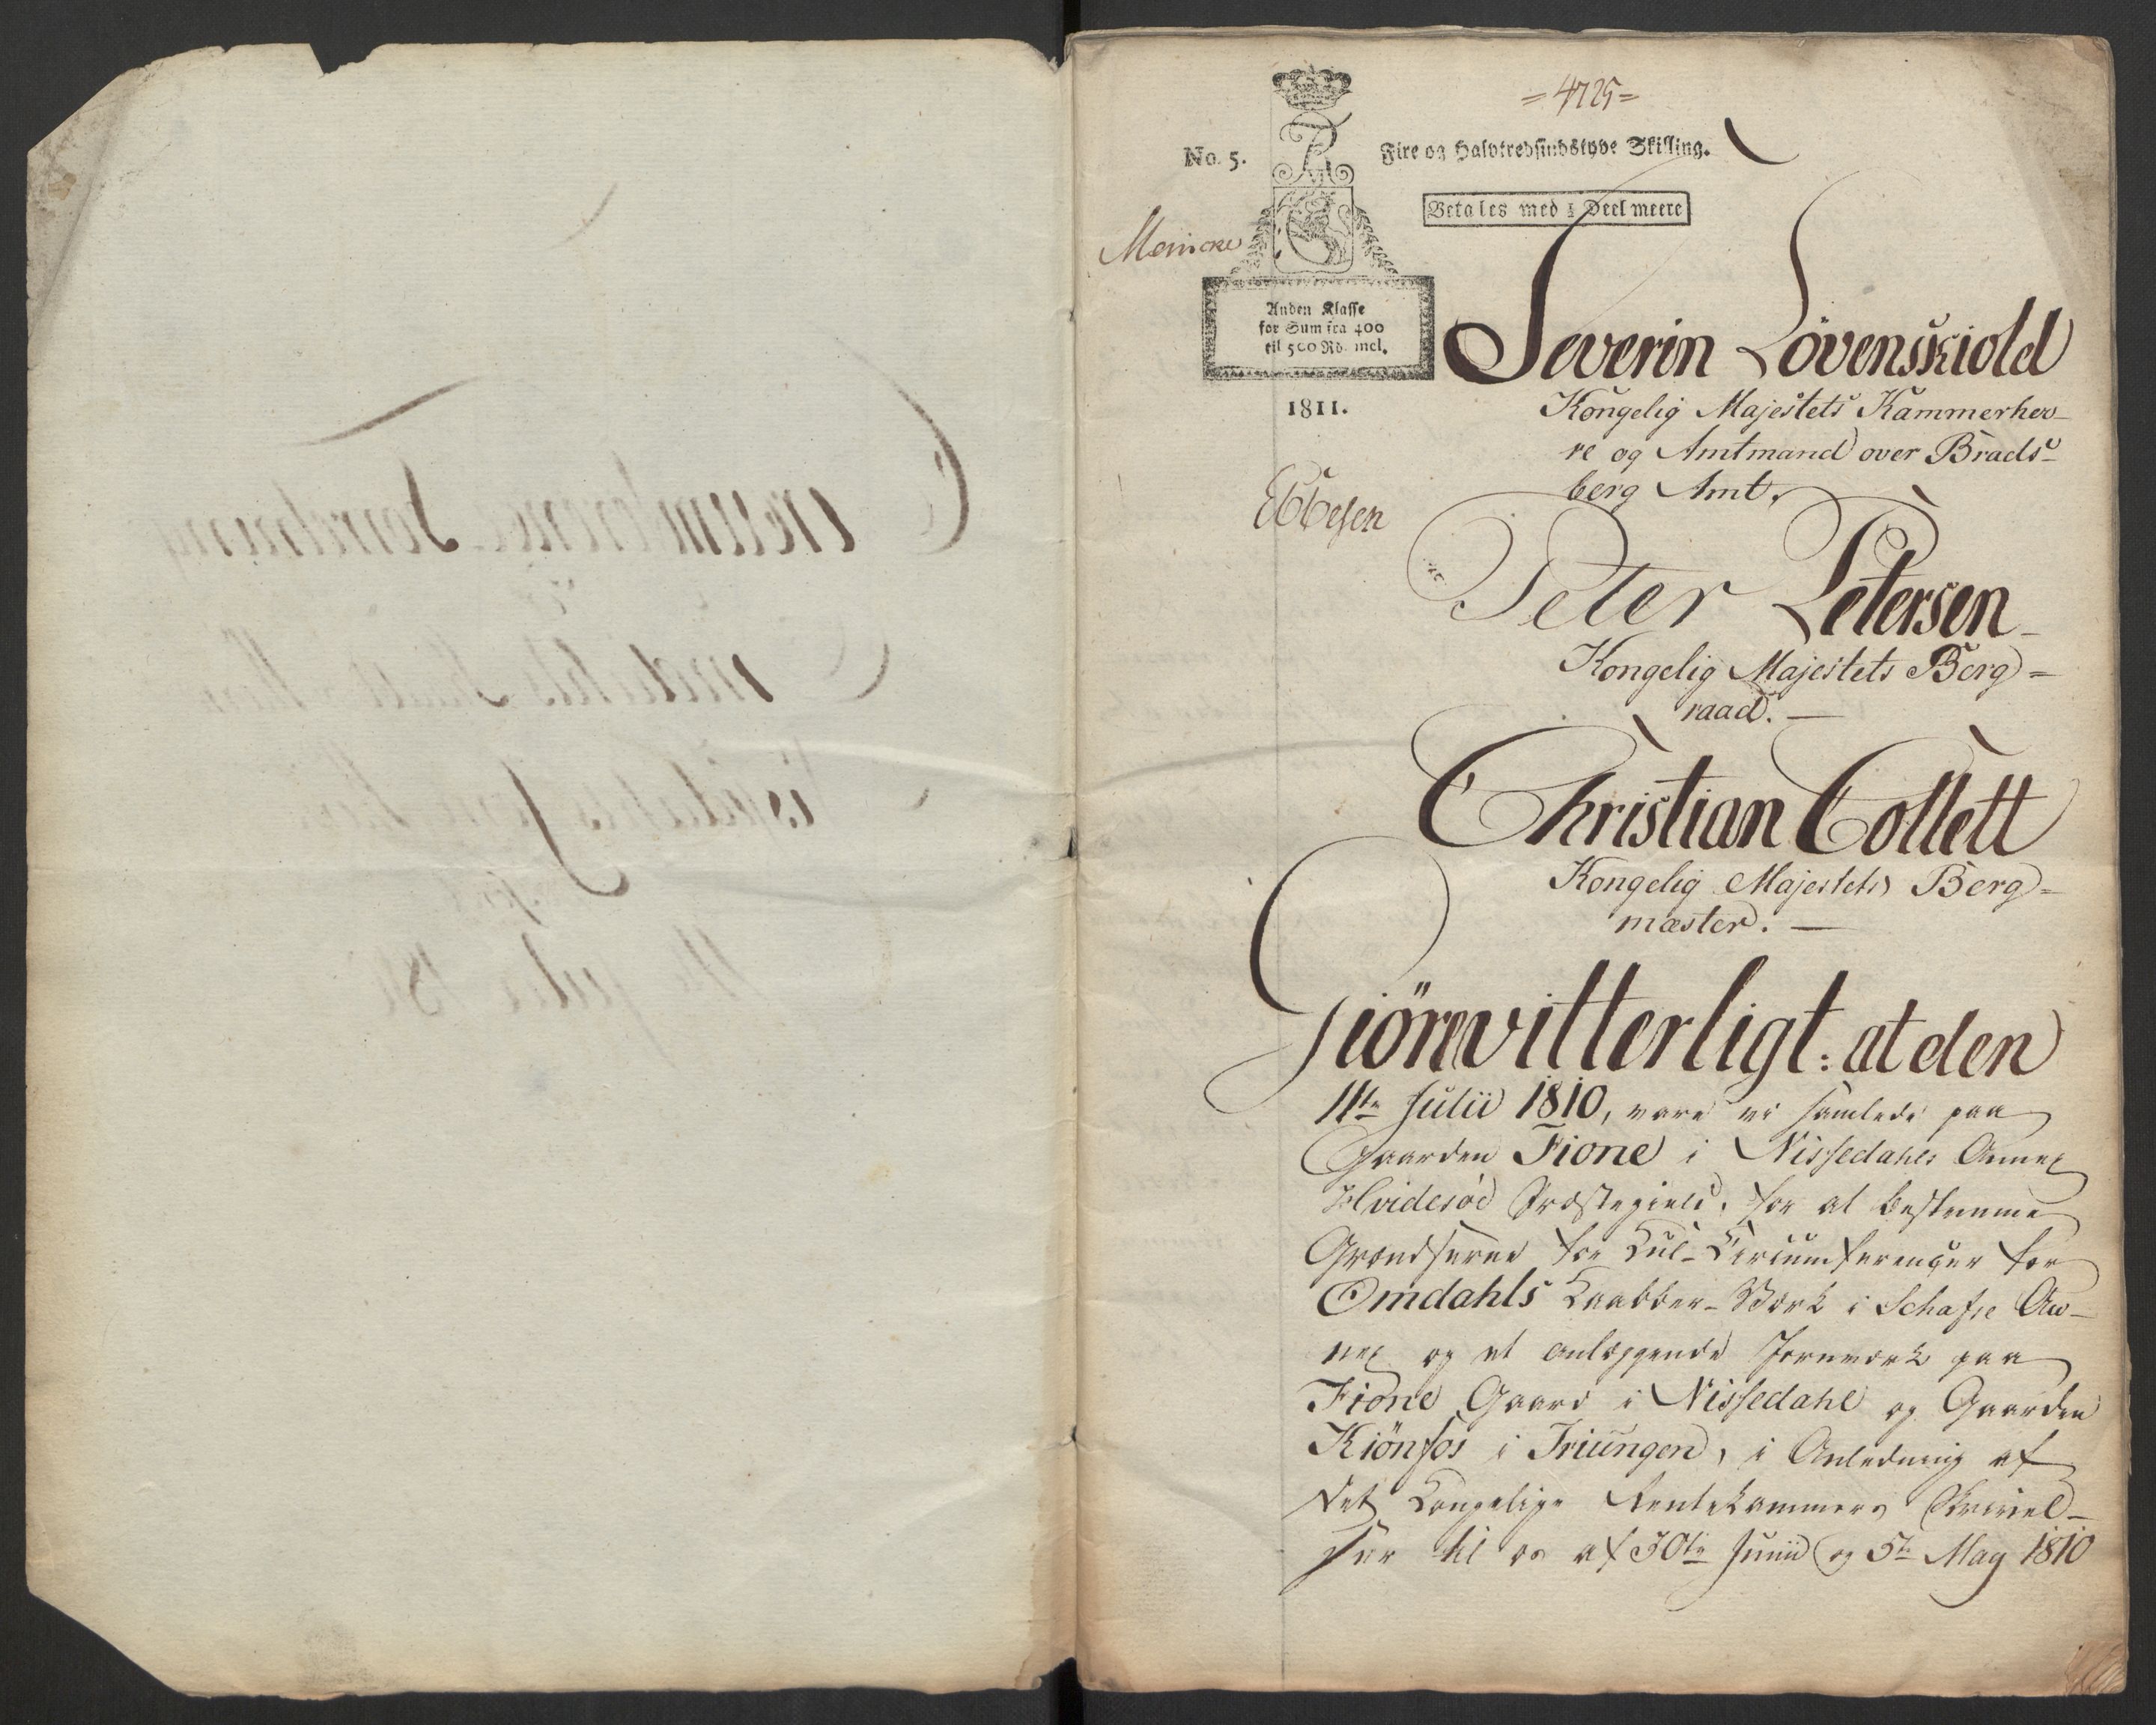 = 4725 =
No. 5.
Fire og Halvtredsindstyve Skilling.
Betales med 1 Deel meere
Meincke
Anden Klasse
for Sum fra 400
til 500 Rd. incl.
1811.
Ebbesen
Severin Lövenskiold
Kongelig Majestets Kammerher-
re og Amtmand over Brads-
berg Amt,
Peter Petersen
Kongelig Majestets Berg=
raad. —
Christian Collett
Kongelig Majestets Berg=
mæster. —
Giöre vitterligt: at den
11te Julii 1810, vare vi samlede paa
Gaarden Fione i Nissedahls Annex
Hvidesöe Præstegield, for at bestemme
Grændserne for Kul-Circumferencer for
Omdahls Kaabber-Værk i Schafse An-
nex og et anlæggende Jernværk paa
Fione Gaard i Nissedahl og Gaarden
Kiönfos i Triungen, i Anledning af
det Kongelige Rentekammers Skrivel-
ser til os af 30te Junii og 5te May 1810